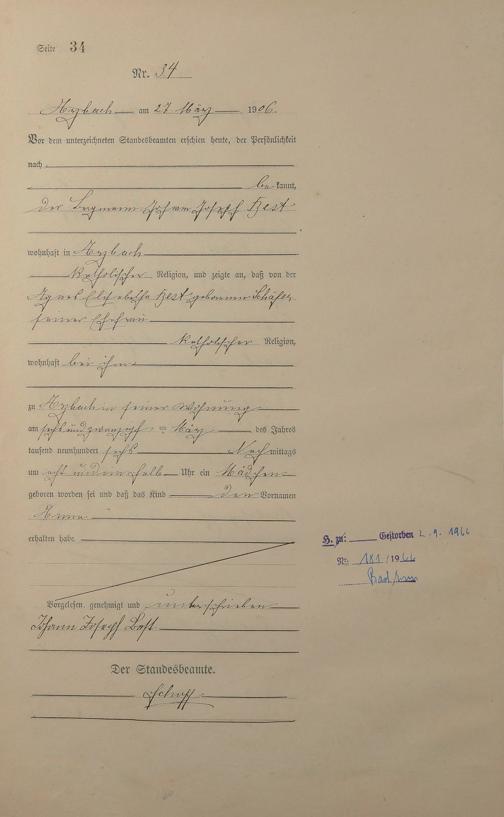 Seite 34
Nr. 34
am 27 März 1906.
Vor dem unterzeichneten Standesbeamten erschien heute, der Persönlichkeit
nach
be kannt,
der Bergmann Johann Joseph Best
wohnhaft in
katholischer Religion, und zeigte an, daß von der
Agnes Elisabetha Best geborenen Schäfer
seiner Ehefrau
katholischer Religion,
wohnhaft bei ihm
zu in seiner Wohnung
am sechsundzwanzigsten März des Jahres
tausend neunhundert sechs Nach mittags
um acht undeinhalb Uhr ein Mädchen
geboren worden sei und daß das Kind den Vornamen
Anna
erhalten habe.
Vorgelesen, genehmigt und unterschrieben
Johann Joseph Best
Der Standesbeamte.
H. zu: Gestorben 2.9.1966
Nr. 181/1966